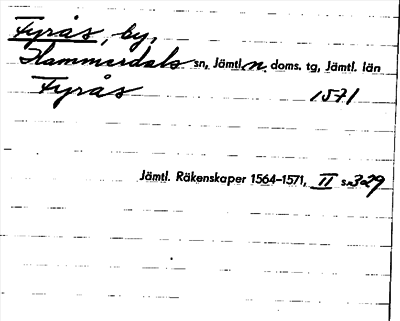 Fyrås, by,
Hammerdals sn, Jämtl. n. doms. tg, Jämtl. län
Fyrås 1571
Jämtl. Räkenskaper 1564-1571, II s. 329